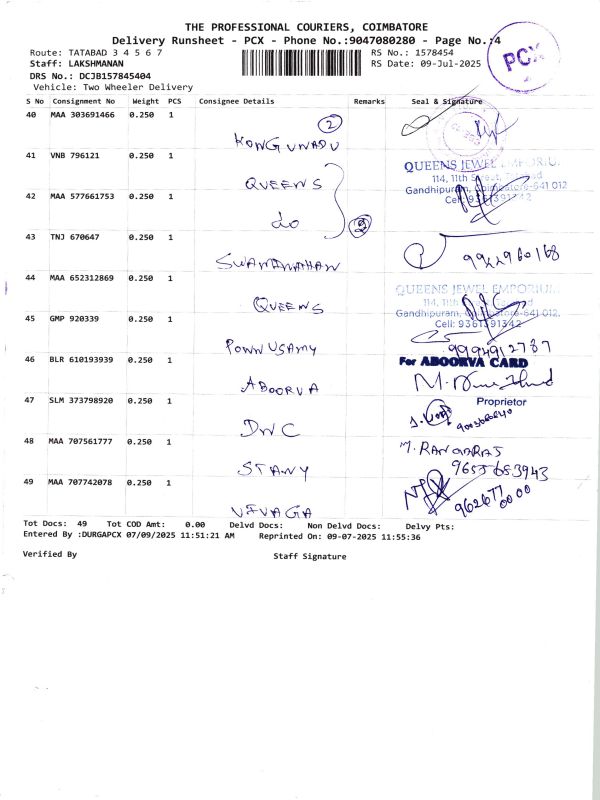 THE PROFESSIONAL COURIERS, COIMBATORE
Delivery Runsheet - PCX - Phone No.:9047080280 - Page No.:4
Route: TATABAD 3 4 5 6 7
RS No.: 1578454
Staff: LAKSHMANAN
RS Date: 09-Jul-2025
DRS No.: DCJB157845404
Vehicle: Two Wheeler Delivery
PCX
S No Consignment No Weight PCS Consignee Details Remarks Seal & Signature
40 MAA 303691466 0.250 1
2
KONGUNADU
41 VNB 796121 0.250 1
QUEENS
QUEENS JEWEL EMPORIUM
114, 11th Street,
Gandhipuram, Coimbatore-641 012
Cell: 9361391342
42 MAA 577661753 0.250 1
do
43 TNJ 670647 0.250 1
SWAMINATHAN
9922960168
44 MAA 652312869 0.250 1
QUEENS
QUEENS JEWEL EMPORIUM
114, 11th
Gandhipuram, Coimbatore-641 012.
Cell: 9361391342
45 GMP 920339 0.250 1
PONNUSAMY
9994912787
46 BLR 610193939 0.250 1
ABOORVA
For ABOORVA CARD
Proprietor
47 SLM 373798920 0.250 1
DWC
48 MAA 707561777 0.250 1
STANY
M. RANGARAJ
9655653943
49 MAA 707742078 0.250 1
VIVAGA
9626770000
Tot Docs: 49 Tot COD Amt: 0.00 Delvd Docs: Non Delvd Docs: Delvy Pts:
Entered By :DURGAPCX 07/09/2025 11:51:21 AM Reprinted On: 09-07-2025 11:55:36
Verified By Staff Signature